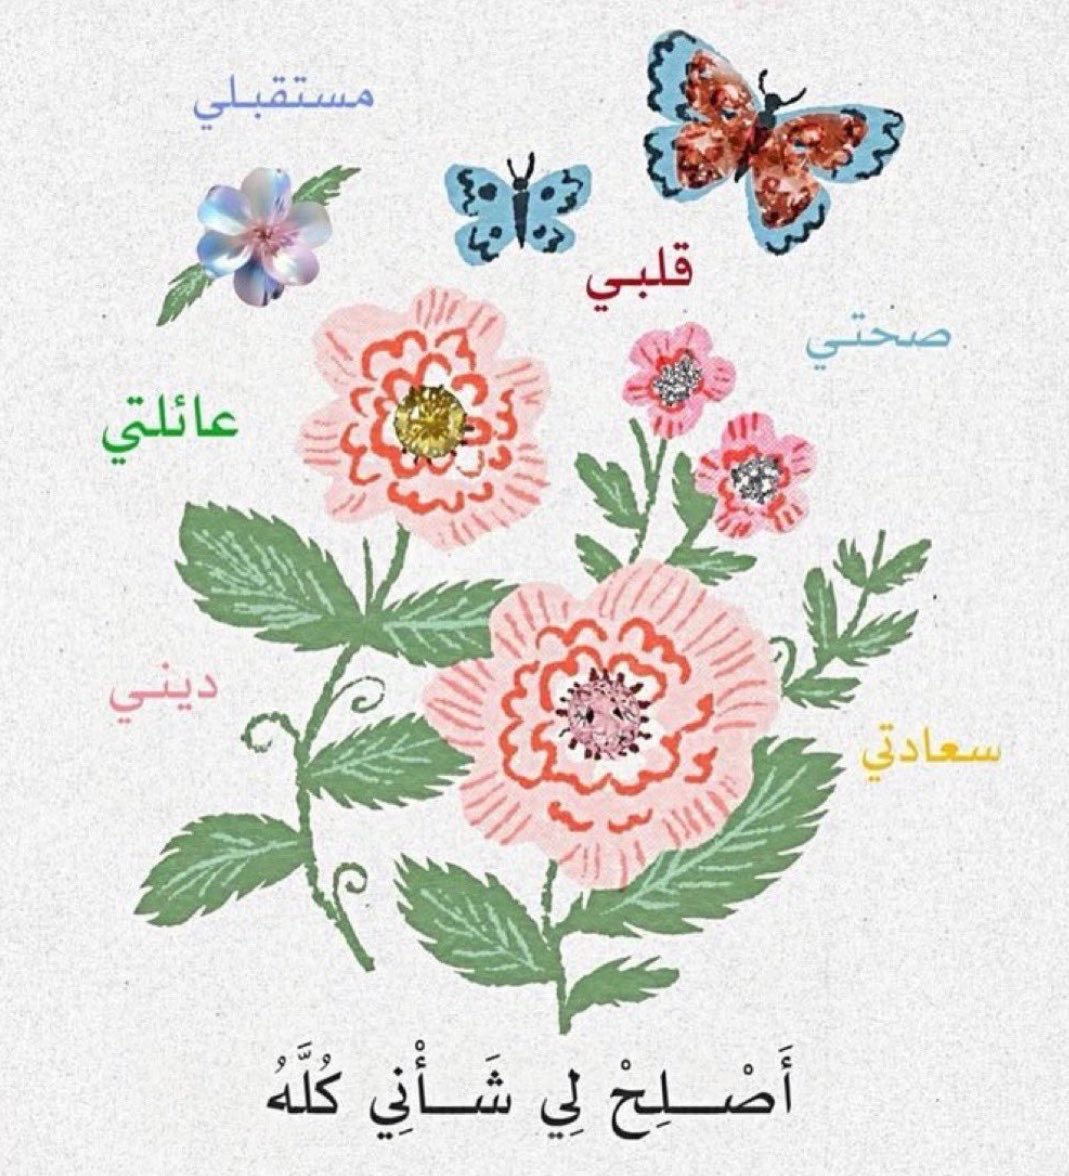 مستقبلي
قلبي
صحتي
عائلتي
ديني
سعادتي
أَصْلِحْ لِي شَأْنِي كُلَّهُ